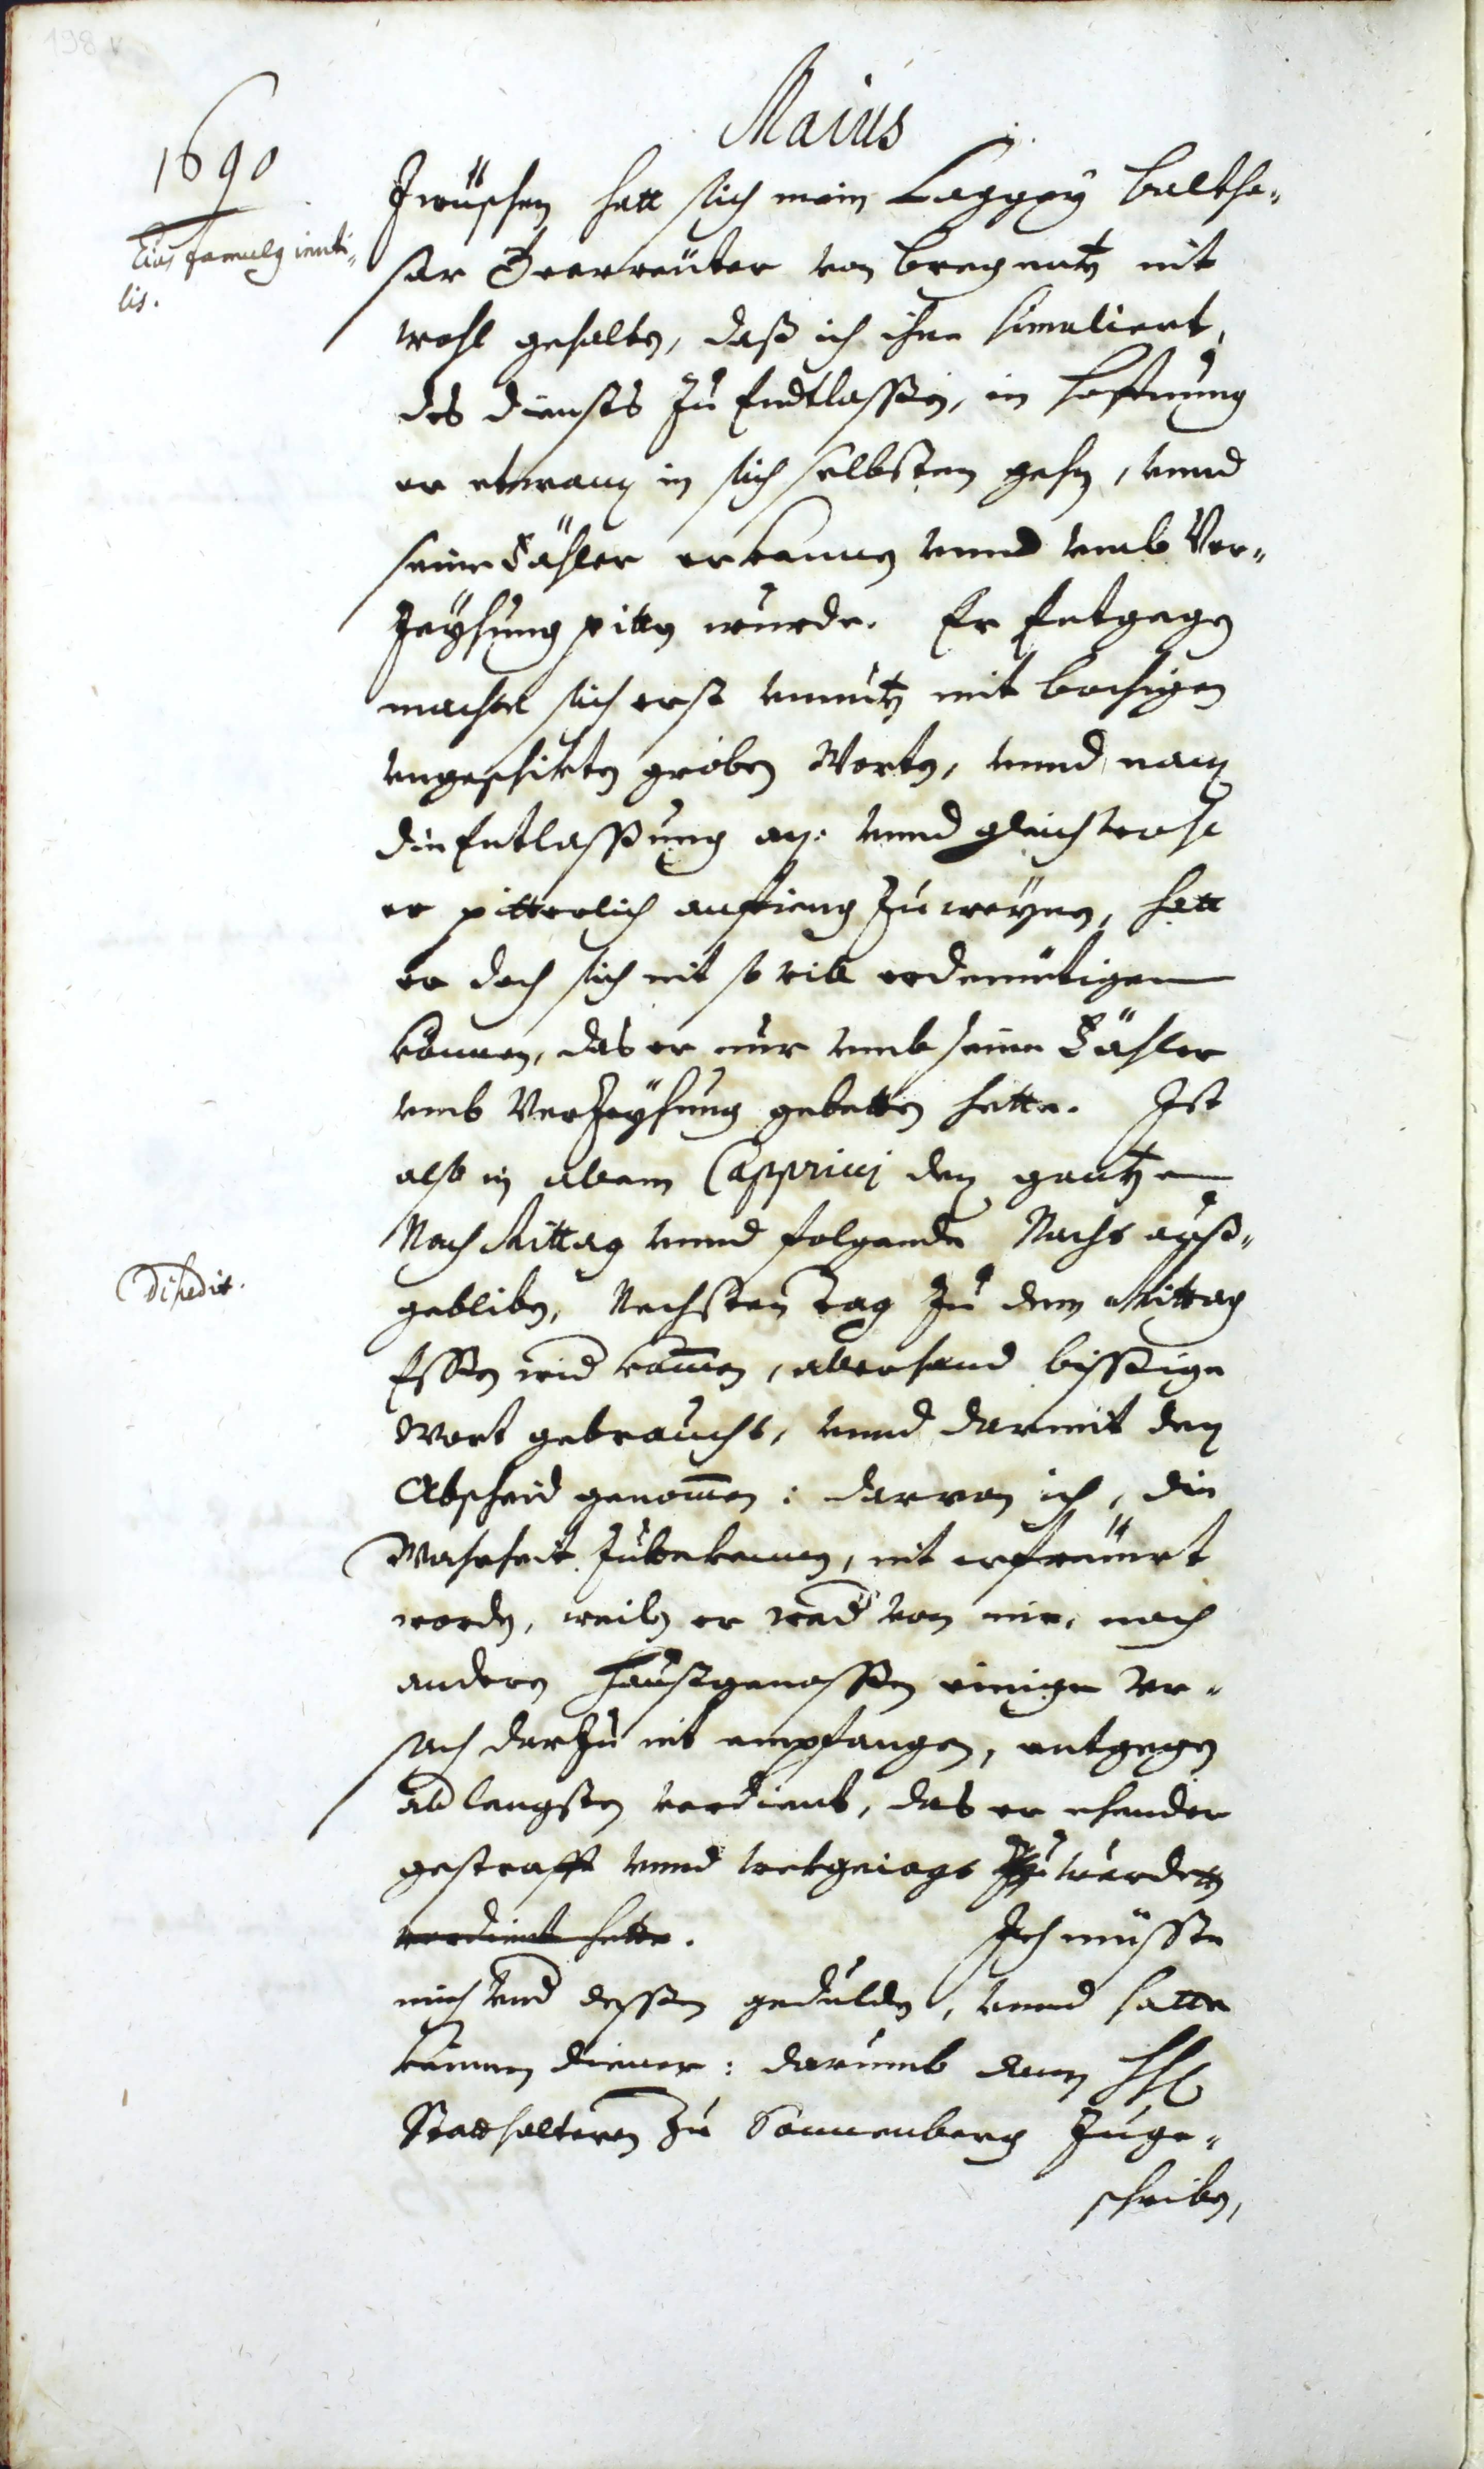 198 v
Maius
1690
Eius famulus inuti„
lis.
Zwüschen hatt sich mein Laggey Baltha„
sar von Bregentz nit
wohl gehalten, daß ich ihne simuliert,
des diensts zu Endtlassen, in hoffnung
er etwan in sich selbsten gehn, vnnd
seine Fähler erkennen vnnd vmb Ver„
zeÿhung pitten wurde. Er Entgegen
machte sich erst vnnutz mit bochigen
vngeschikten groben Worten, vnnd nam
die Entlassung an: vnnd gleichwohl
er pitterlich anfieng zu weÿnen, hatt
er doch sich nit so vill erdemütigen
können, das er nur vmb seine Fähler
vmb Verzeÿhung gebetten hette. Ist
also in allem Cappricij den gantzen
Nach Mittag vnnd folgende Nacht auß„
gebliben, Nechsten Tag zu dem Mittag
Essen wid kom̄en, allerhand bissige
Wort gebraucht, vnnd darmit den
Abscheid genom̄en: darvon ich, die
Wahrheit zu bekennen, nit erfreüwt
worden, weilen er wed von mir, noch
andern Haußgenossen einige Vr„
sach darzu nit empfangen, entgegen
all lengsten verdient, das er ehender
gestrafft vnnd wekgeiagt zu werden
verdient hette. Ich müsste
mich vnd dessen gedulden, vnnd hatte
keinen diener: darumb dann HH
Statthalteren zu Sonnenberg zuge„
schriben,
Discedit.